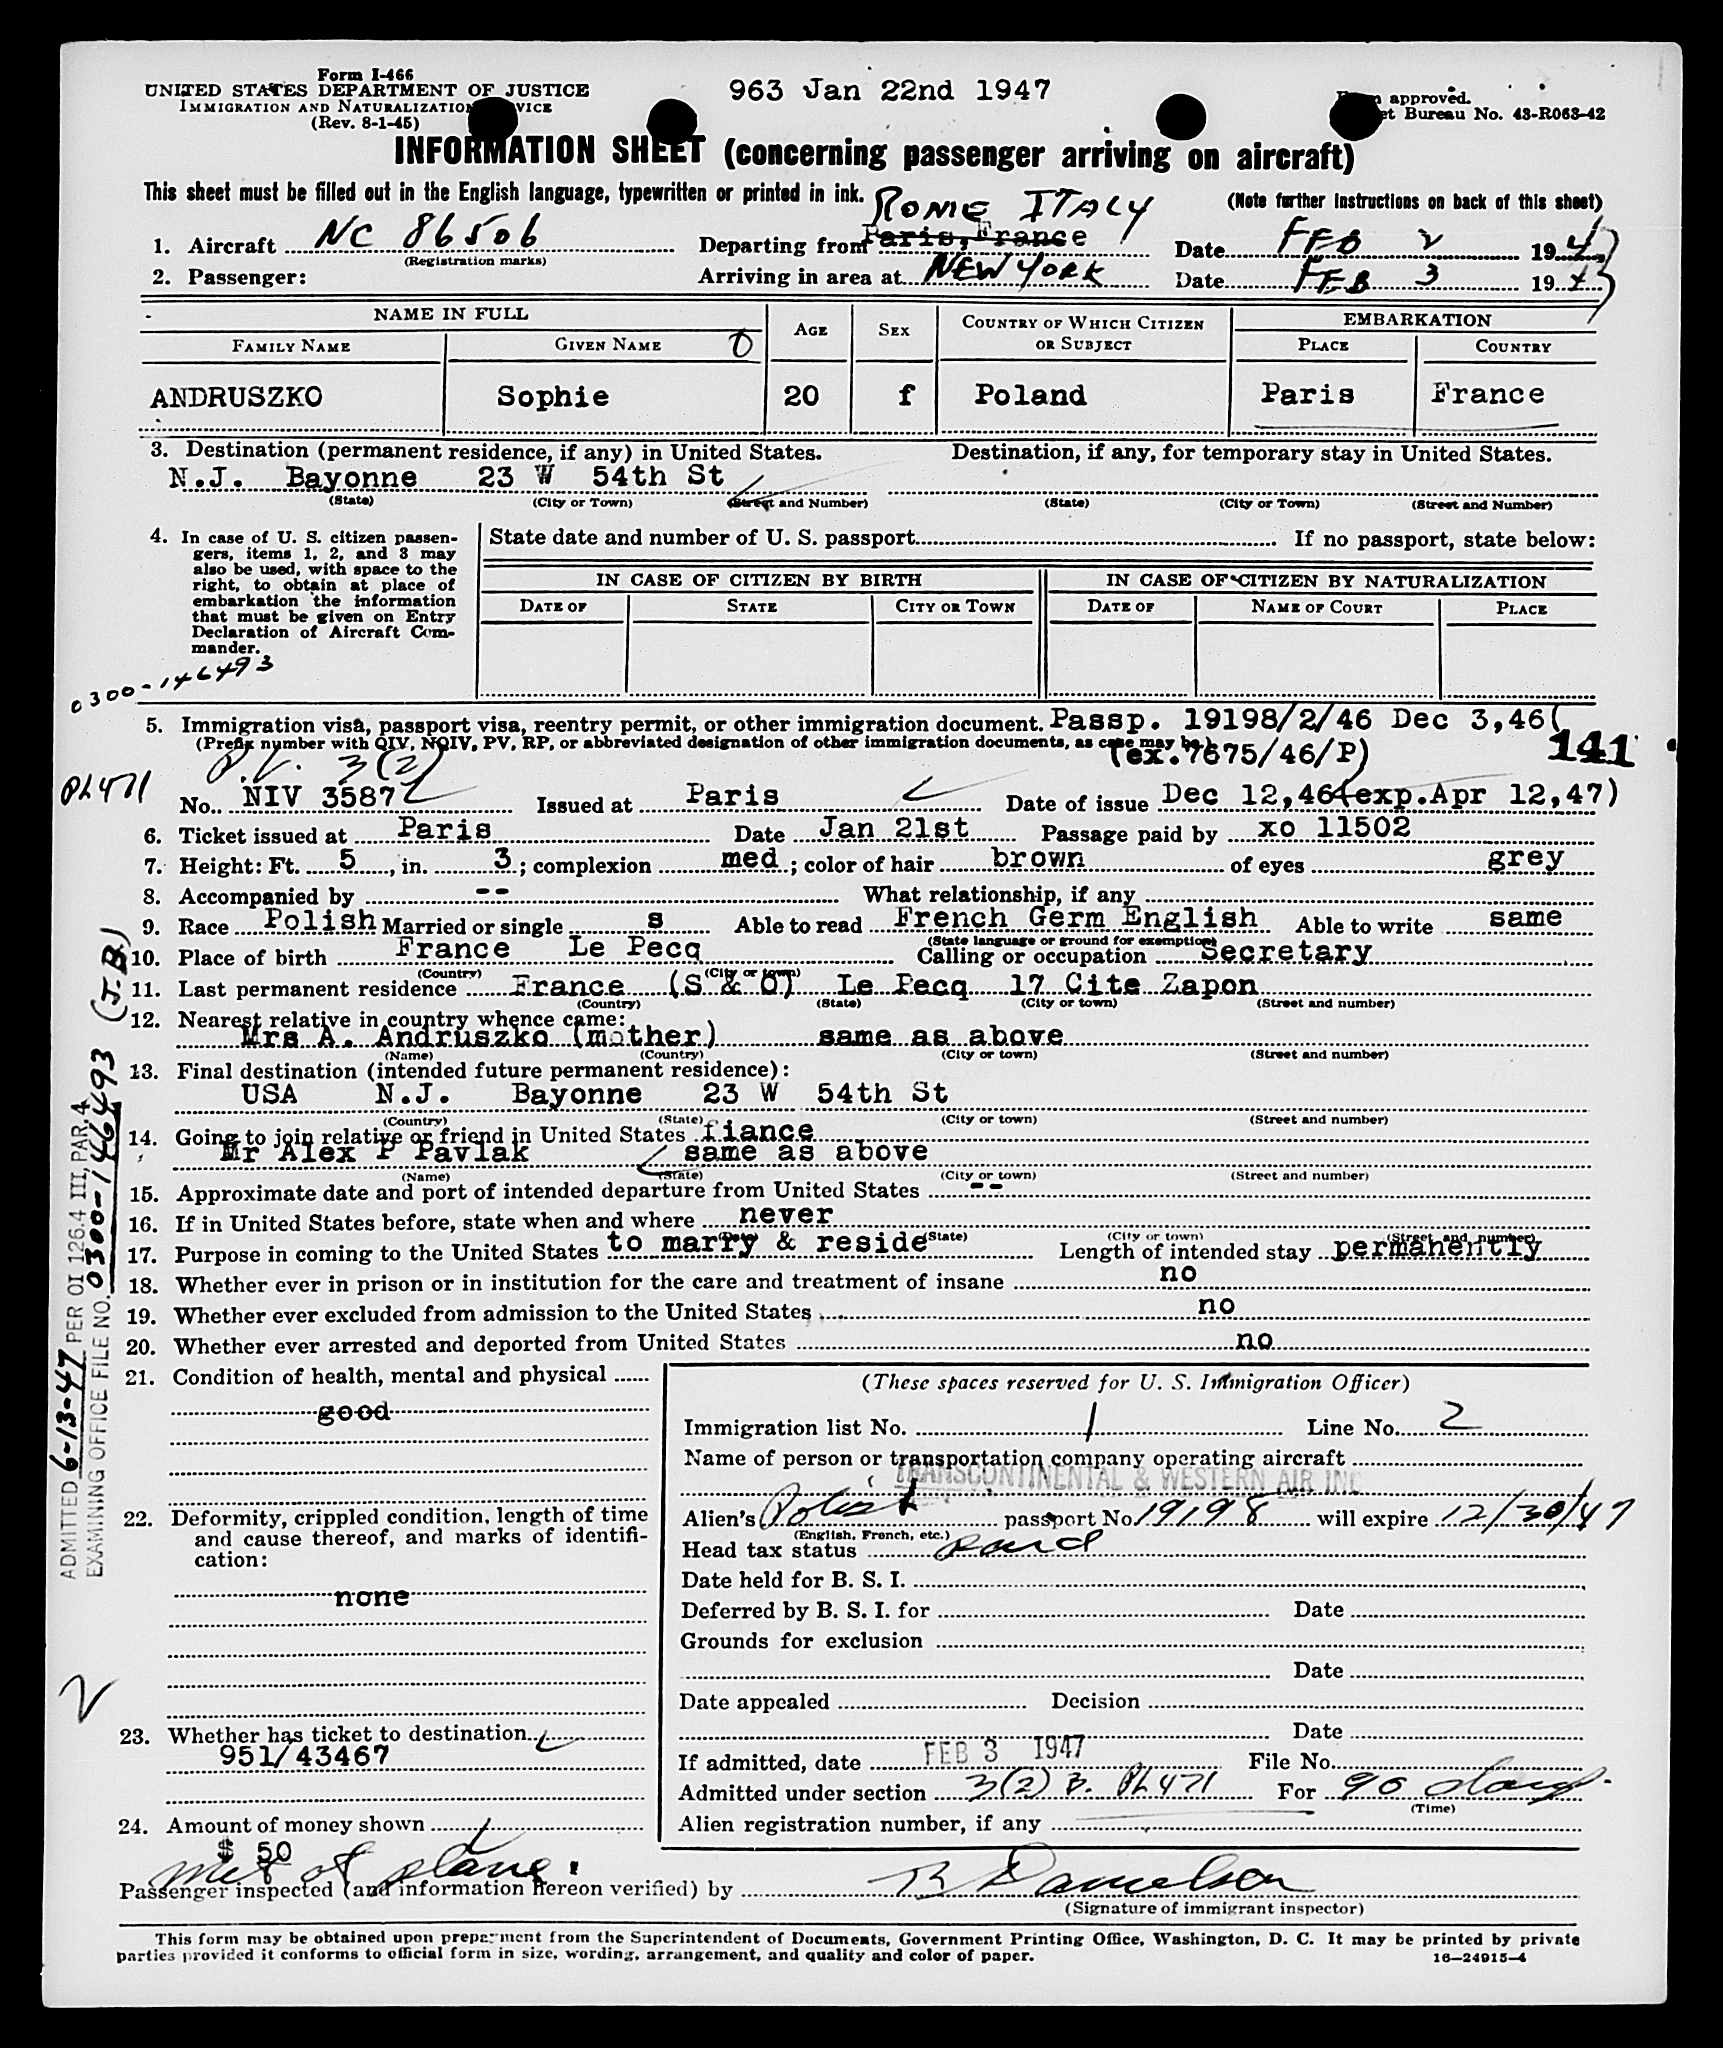 Form I-466
UNITED STATES DEPARTMENT OF JUSTICE
IMMIGRATION AND NATURALIZATION
(Rev. 8-1-45)
963 Jan 22nd 1947
approved.
Bureau No. 43-R063-42
INFORMATION SHEET (concerning passenger arriving on aircraft)
This sheet must be filled out in the English language, typewritten or printed in ink.
(Note further instructions on back of this sheet)
ROME ITALY
1. Aircraft NC 86506 Departing from Paris, France Date FEB 2 1947
(Registration marks)
2. Passenger: Arriving in area at NEW YORK Date FEB 3 1947
NAME IN FULL AGE SEX COUNTRY OF WHICH CITIZEN OR SUBJECT EMBARKATION
FAMILY NAME GIVEN NAME PLACE COUNTRY
ANDRUSZKO Sophie 20 f Poland Paris France
3. Destination (permanent residence, if any) in United States. Destination, if any, for temporary stay in United States.
N.J. Bayonne 23 W 54th St
(State) (City or Town) (Street and Number) (State) (City or Town) (Street and Number)
4. In case of U. S. citizen passen-
gers, items 1, 2, and 3 may
also be used, with space to the
right, to obtain at place of
embarkation the information
that must be given on Entry
Declaration of Aircraft Com-
mander.
State date and number of U. S. passport If no passport, state below:
IN CASE OF CITIZEN BY BIRTH IN CASE OF CITIZEN BY NATURALIZATION
DATE OF STATE CITY OR TOWN DATE OF NAME OF COURT PLACE
0300-146493
5. Immigration visa, passport visa, reentry permit, or other immigration document. Passp. 19198/2/46 Dec 3,46(
(Prefix number with QIV, NQIV, PV, RP, or abbreviated designation of other immigration documents, as case may be.)
(ex.7675/46/P)
141
P.V. 3(2)
PL471
No. NIV 3587 Issued at Paris Date of issue Dec 12,46(exp.Apr 12,47)
6. Ticket issued at Paris Date Jan 21st Passage paid by xo 11502
7. Height: Ft. 5, in. 3; complexion med; color of hair brown of eyes grey
8. Accompanied by -- What relationship, if any
9. Race Polish Married or single s Able to read French Germ English Able to write same
(State language or ground for exemption)
10. Place of birth France Le Pecq Calling or occupation Secretary
(Country) (City or town)
11. Last permanent residence France (S & O) Le Pecq 17 Cite Zapon
(Country) (State) (City or town) (Street and number)
12. Nearest relative in country whence came:
Mrs A. Andruszko (mother) same as above
(Name) (Country) (City or town) (Street and number)
13. Final destination (intended future permanent residence):
USA N.J. Bayonne 23 W 54th St
(Country) (State) (City or town) (Street and number)
14. Going to join relative or friend in United States fiance
Mr Alex P Pavlak same as above
(Name) (State) (City or town) (Street and number)
15. Approximate date and port of intended departure from United States --
16. If in United States before, state when and where never
(State) (City or town) (Street and number)
17. Purpose in coming to the United States to marry & reside Length of intended stay permanently
18. Whether ever in prison or in institution for the care and treatment of insane no
19. Whether ever excluded from admission to the United States no
20. Whether ever arrested and deported from United States no
ADMITTED 6-13-47 PER OI 126.4 III, PAR. 4
EXAMINING OFFICE FILE NO. 0300-146493 (J.B.)
21. Condition of health, mental and physical
good
22. Deformity, crippled condition, length of time
and cause thereof, and marks of identifi-
cation:
none
2
23. Whether has ticket to destination
951/43467
24. Amount of money shown
$ 50
(These spaces reserved for U. S. Immigration Officer)
Immigration list No. 1 Line No. 2
Name of person or transportation company operating aircraft
TRANSCONTINENTAL & WESTERN AIR INC
Alien's Polish passport No. 19198 will expire 12/30/47
(English, French, etc.)
Head tax status paid
Date held for B. S. I.
Deferred by B. S. I. for Date
Grounds for exclusion
Date
Date appealed Decision
Date
If admitted, date FEB 3 1947 File No.
Admitted under section 3(2) PL 471 For 90 days.
(Time)
Alien registration number, if any
met at plane.
Passenger inspected (and information hereon verified) by B Danielson
(Signature of immigrant inspector)
This form may be obtained upon prepayment from the Superintendent of Documents, Government Printing Office, Washington, D. C. It may be printed by private
parties provided it conforms to official form in size, wording, arrangement, and quality and color of paper.
16—24915-4